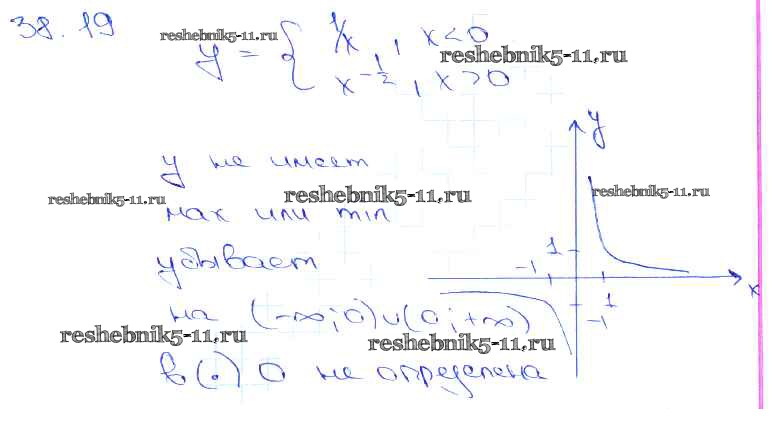 38.19
reshebnik5-11.ru
y = { 1/x, x<0
reshebnik5-11.ru
x^{-1/2}, x>0
y
y не имеет
reshebnik5-11.ru
reshebnik5-11.ru
reshebnik5-11.ru
max или min
убывает
1
-1
x
на (-∞;0)∪(0;+∞)
1
-1
reshebnik5-11.ru
reshebnik5-11.ru
в (.) 0 не определена